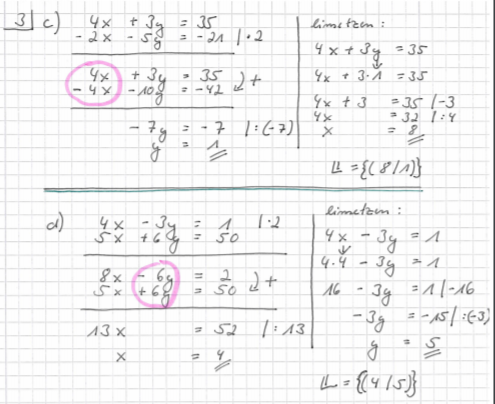 3 c) 4x + 3y = 35
- 2x - 5y = -21 | · 2
4x + 3y = 35
- 4x - 10y = -42 +
- 7y = - 7 | : (-7)
y = 1
Einsetzen :
4x + 3y = 35
4x + 3 · 1 = 35
4x + 3 = 35 | -3
4x = 32 | : 4
x = 8
𝕃 = {( 8 / 1 )}
d) 4x - 3y = 1 | · 2
5x + 6y = 50
8x - 6y = 2
5x + 6y = 50 +
13x = 52 | : 13
x = 4
Einsetzen :
4x - 3y = 1
4 · 4 - 3y = 1
16 - 3y = 1 | -16
- 3y = -15 | : (-3)
y = 5
𝕃 = {( 4 / 5 )}